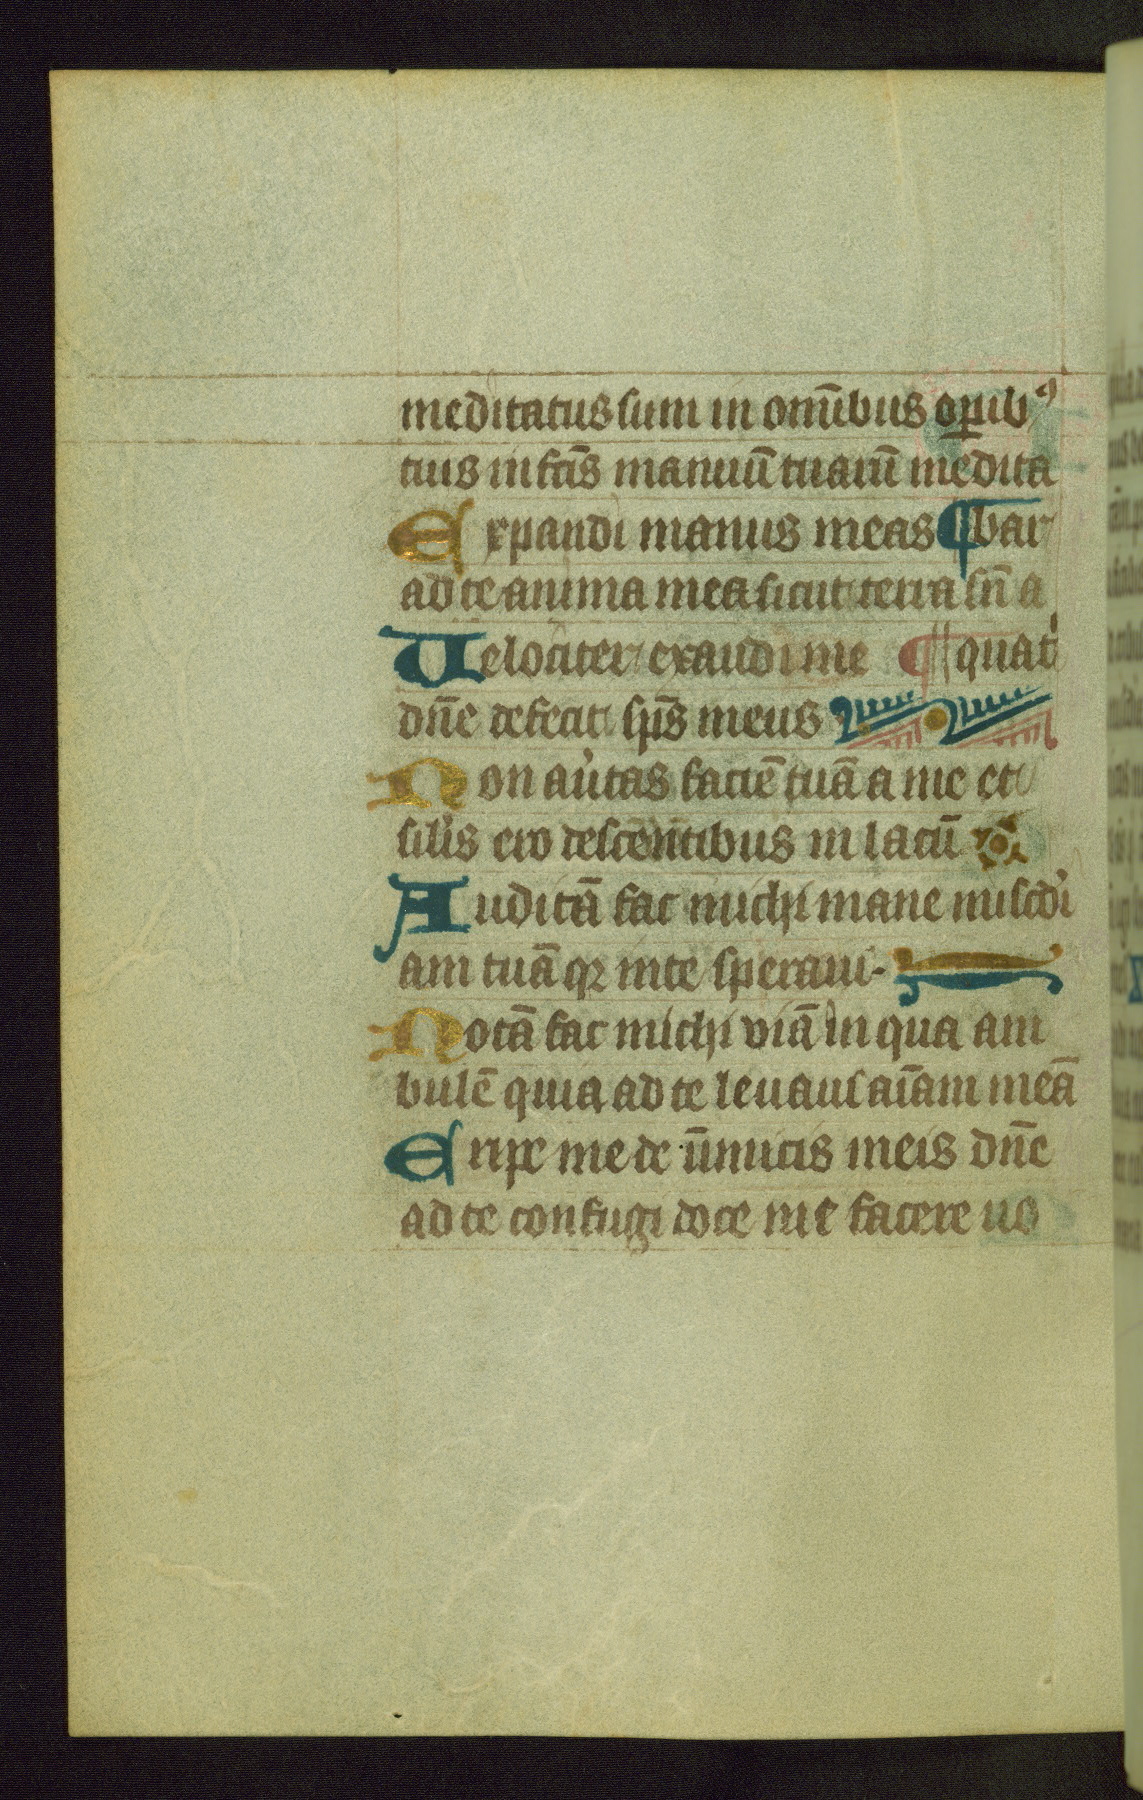 meditatus sum in om̄ibus oꝑibꝰ
tuis in fc̄is manuū tuarū medita
Expandi manus meas ¶bar
ad te anima mea sicut terra sn̄ a
Velociter exaudi me ¶quaᵗ
dn̄e defecit sp̄s meus
Non au̓tas faciē tuā a me et
sil̓is ero descentibus in lacū
Auditā fac michi mane mis̓cdi
am tuā qꝛ in te speraui
Notā fac michi viā in qua am
bulē quia ad te leuaui aīam meā
Eripe me de īnimicis meis dn̄e
ad te confugi doce me facere uo